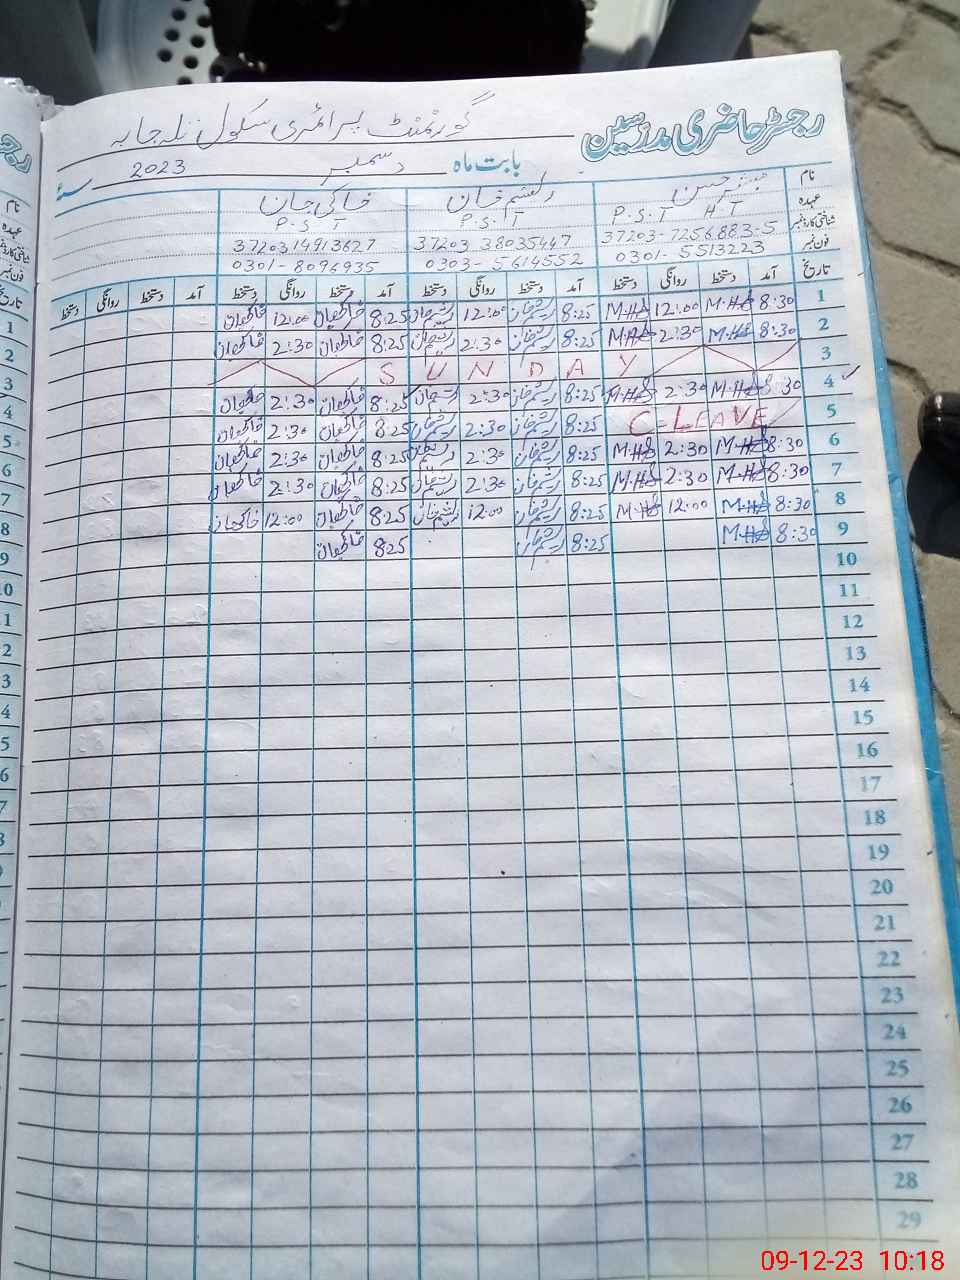 رجسٹر حاضری مدرسین
گورنمنٹ پرائمری سکول نلہ جابہ
بابت ماہ دسمبر 2023 سنہ
نام مبشر حسن ریشم خان خاکی جان
عہدہ P.S.T H T P.S.T P.S.T
شناختی کارڈ نمبر 37203-7256883-5 37203 38035447 3720314913627
فون نمبر 0301-5513223 0303-5614552 0301-8096935
تاریخ آمد دستخط روانگی دستخط آمد دستخط روانگی دستخط آمد دستخط روانگی دستخط آمد دستخط روانگی دستخط
1 8:30 12:00 8:25 ریشم خان 12:00 ریشم خان 8:25 خاکی جان 12:00 خاکی جان
2 8:30 2:30 8:25 ریشم خان 2:30 ریشم خان 8:25 خاکی جان 2:30 خاکی جان
3 SUNDAY
4 8:30 2:30 8:25 ریشم خان 2:30 ریشم خان 8:25 خاکی جان 2:30 خاکی جان
5 C-LEAVE 8:25 ریشم خان 2:30 ریشم خان 8:25 خاکی جان 2:30 خاکی جان
6 8:30 2:30 8:25 ریشم خان 2:30 ریشم خان 8:25 خاکی جان 2:30 خاکی جان
7 8:30 2:30 8:25 ریشم خان 2:30 ریشم خان 8:25 خاکی جان 2:30 خاکی جان
8 8:30 12:00 8:25 ریشم خان 12:00 ریشم خان 8:25 خاکی جان 12:00 خاکی جان
9 8:30 8:25 ریشم خان 8:25 خاکی جان
10
11
12
13
14
15
16
17
18
19
20
21
22
23
24
25
26
27
28
29
09-12-23 10:18